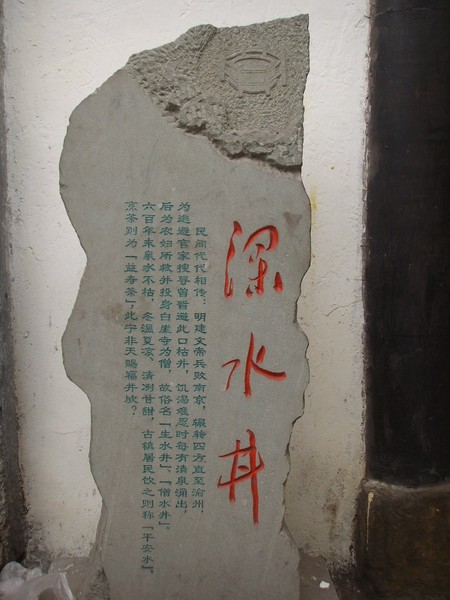 深水井
民间代代相传：明建文帝兵败南京，辗转四方直至渝州，
为逃避官家搜寻曾暂避此口枯井，饥渴难忍时每有清泉涌出，
后为农妇所救并投身白崖寺为僧，故俗名「生水井」、「僧水井」。
六百年来泉水不枯，冬温夏凉、清冽甘甜，古镇居民饮之则称「平安水」，
烹茶则为「益寿茶」，此宁非天赐福井欤？